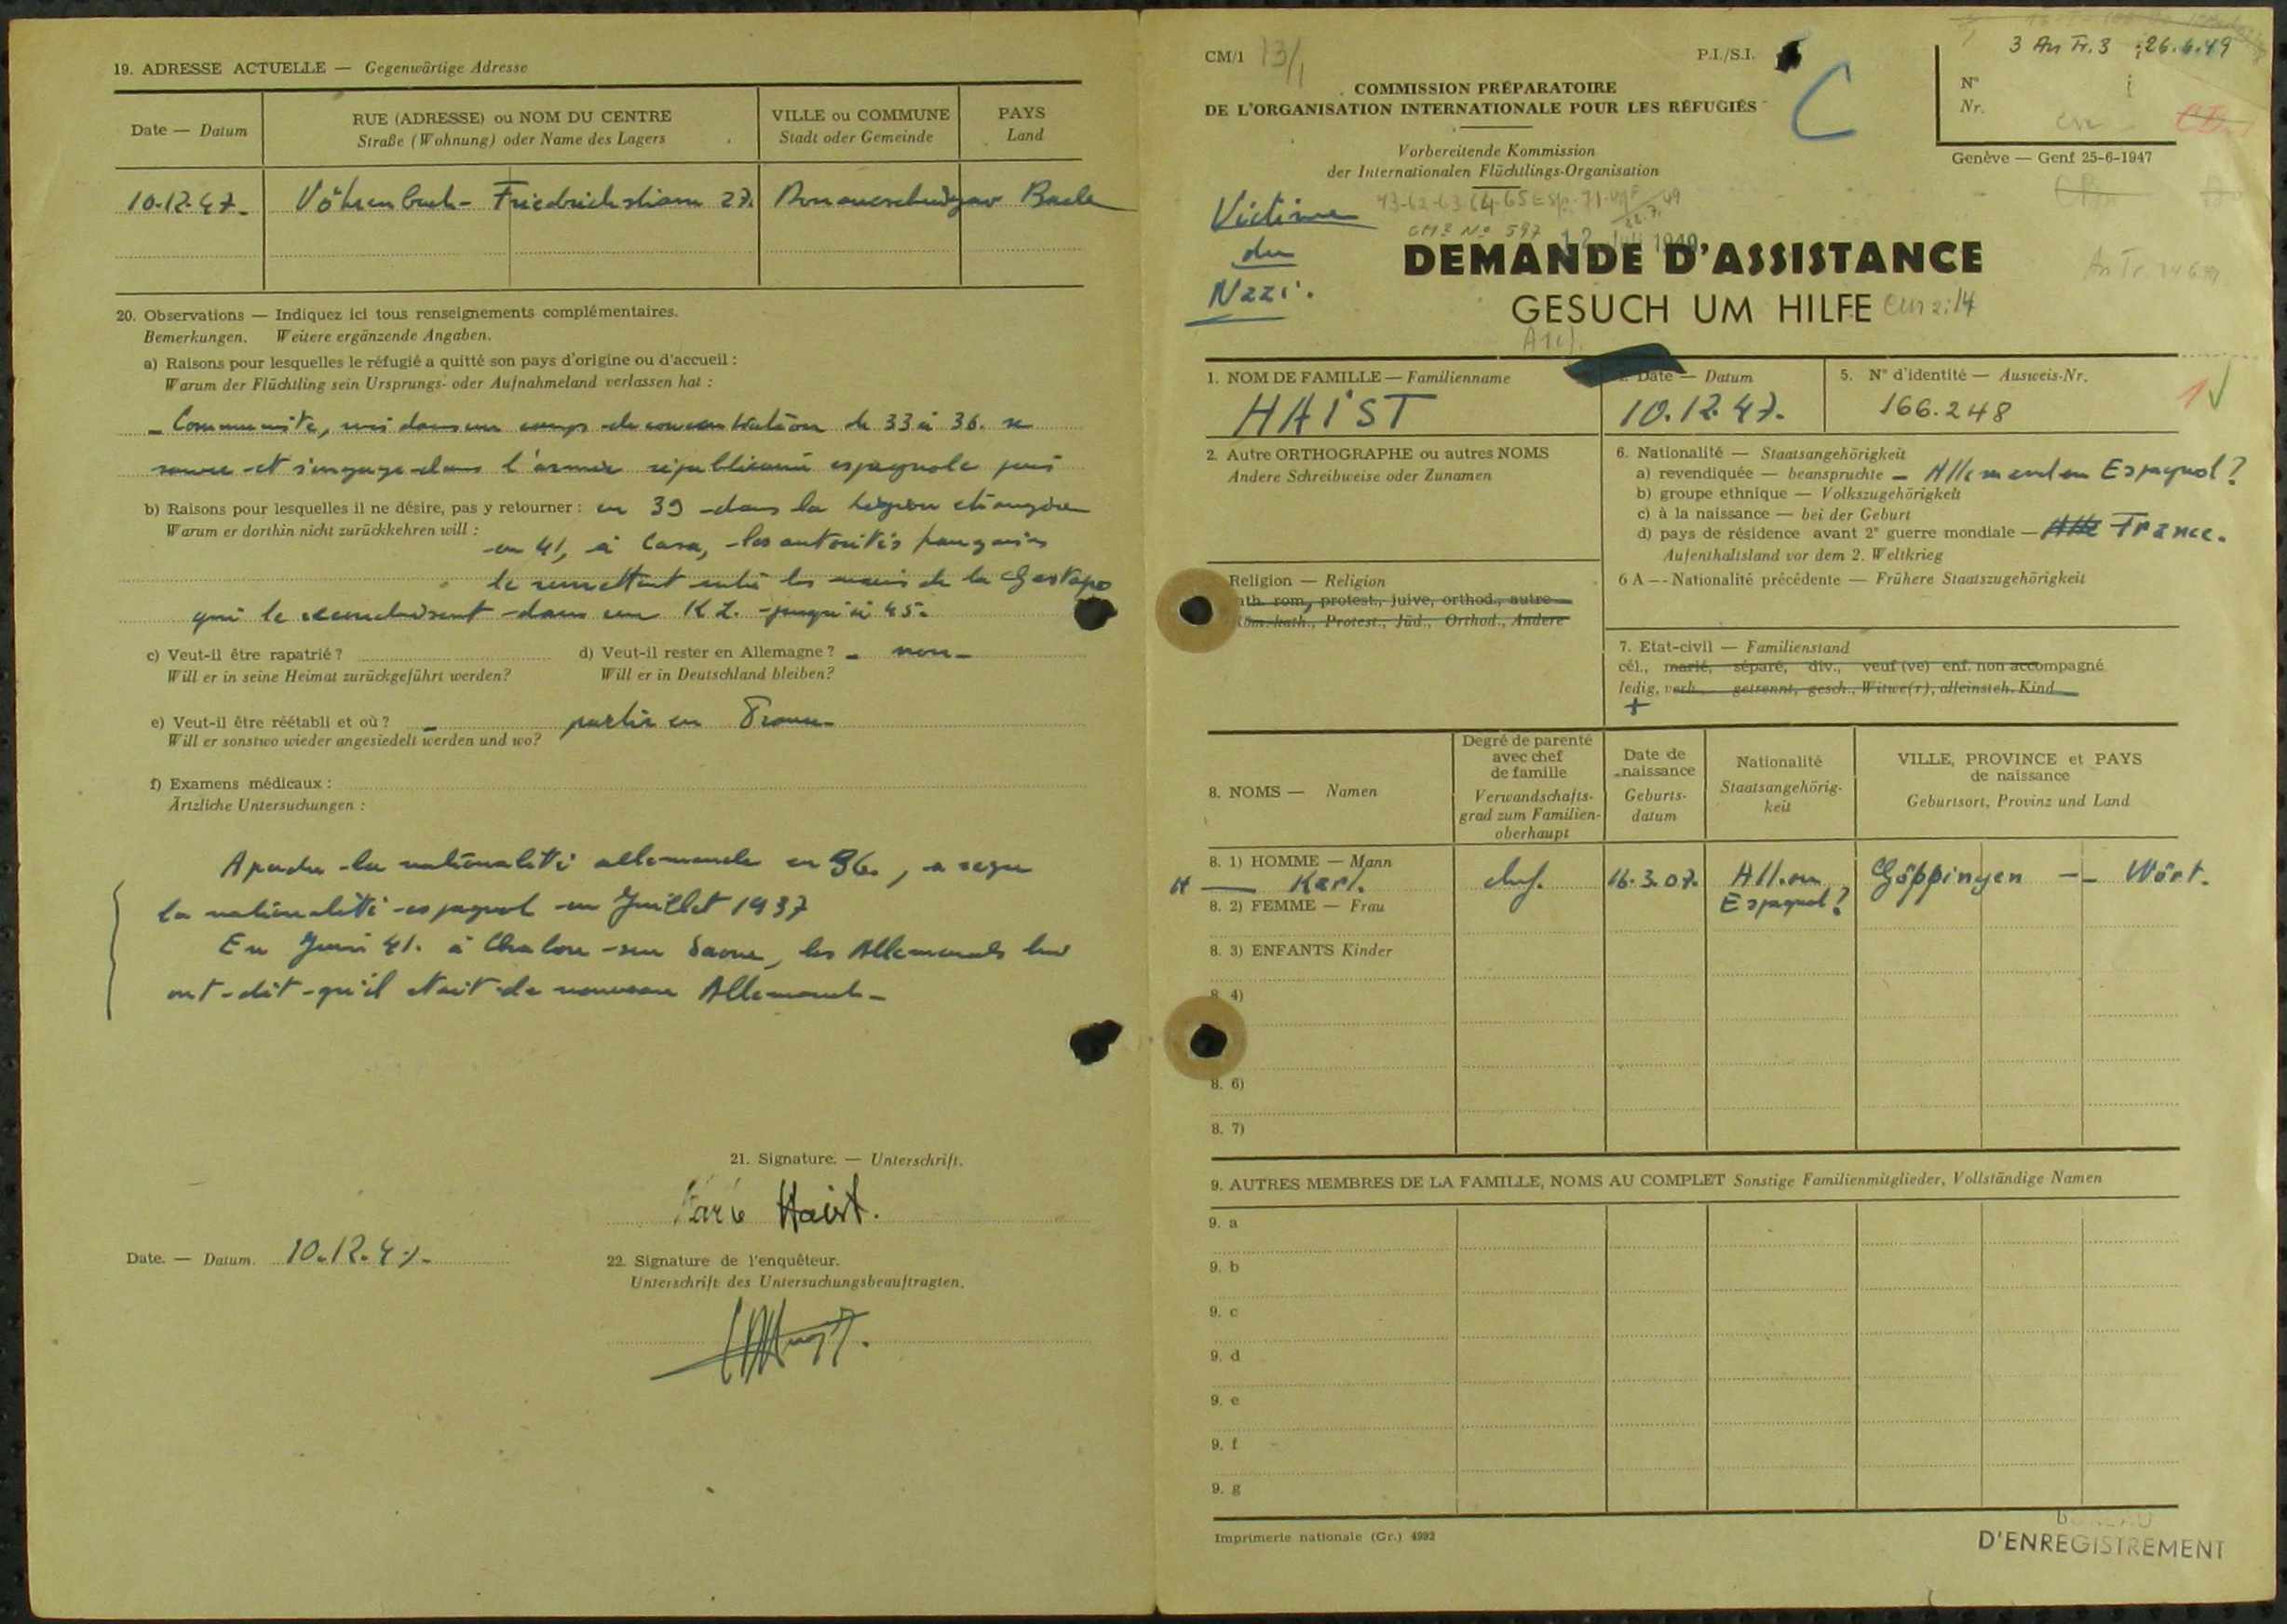 19. ADRESSE ACTUELLE — Gegenwärtige Adresse
Date — Datum
RUE (ADRESSE) ou NOM DU CENTRE
Straße (Wohnung) oder Name des Lagers
VILLE ou COMMUNE
Stadt oder Gemeinde
PAYS
Land
10.12.47. Vöhrenbach - Friedrichstrasse 27. Donaueschingen Bade
20. Observations — Indiquez ici tous renseignements complémentaires.
Bemerkungen. Weitere ergänzende Angaben.
a) Raisons pour lesquelles le réfugié a quitté son pays d'origine ou d'accueil :
Warum der Flüchtling sein Ursprungs- oder Aufnahmeland verlassen hat :
- Communiste, mis dans un camp de concentration de 33 à 36. se
sauve et s'engage dans l'armée républicaine espagnole puis
b) Raisons pour lesquelles il ne désire, pas y retourner : en 39 dans la Légion étrangère
Warum er dorthin nicht zurückkehren will :
en 41, à Casa, les autorités françaises
le remettent entre les mains de la Gestapo
qui le conduisent dans un KZ. jusqu'à 45.
c) Veut-il être rapatrié ?
Will er in seine Heimat zurückgeführt werden?
d) Veut-il rester en Allemagne ? - non -
Will er in Deutschland bleiben?
e) Veut-il être réétabli et où ? - partir en France
Will er sonstwo wieder angesiedelt werden und wo?
f) Examens médicaux :
Ärtzliche Untersuchungen :
A perdu la nationalité allemande en 36., a reçu
la nationalité espagnol en Juillet 1937
En Juin 41. à Chalon-sur Saone, les Allemands lui
ont dit qu'il etait de nouveau Allemand -
21. Signature. — Unterschrift.
Karl Haist.
Date. — Datum. 10.12.47.
22. Signature de l'enquêteur.
Unterschrift des Untersuchungsbeauftragten.
CM/1 13/1
P.I./S.I.
C
3 An Tr. 3 26.6.49
N°
Nr.
Genève — Genf 25-6-1947
COMMISSION PRÉPARATOIRE
DE L'ORGANISATION INTERNATIONALE POUR LES RÉFUGIÉS
Vorbereitende Kommission
der Internationalen Flüchtlings-Organisation
Victime
du
Nazi.
12 Juli 1949
DEMANDE D'ASSISTANCE
GESUCH UM HILFE
1. NOM DE FAMILLE — Familienname
HAIST
Date — Datum
10.12.47.
5. N° d'identité — Ausweis-Nr.
166.248
2. Autre ORTHOGRAPHE ou autres NOMS
Andere Schreibweise oder Zunamen
6. Nationalité — Staatsangehörigkeit
a) revendiquée — beanspruchte - Allemand ou Espagnol ?
b) groupe ethnique — Volkszugehörigkeit
c) à la naissance — bei der Geburt
d) pays de résidence avant 2e guerre mondiale — France.
Aufenthaltsland vor dem 2. Weltkrieg
Religion — Religion
rom, protest., juive, orthod., autre
kath., Protest., Jüd., Orthod., Andere
6 A — Nationalité précédente — Frühere Staatszugehörigkeit
7. Etat-civil — Familienstand
cél., marié, séparé, div., veuf (ve) enf. non accompagné
ledig, verh., getrennt, gesch., Witwe(r), alleinsteh. Kind
+
8. NOMS — Namen
Degré de parenté
avec chef
de famille
Verwandschafts-
grad zum Familien-
oberhaupt
Date de
naissance
Geburts-
datum
Nationalité
Staatsangehörig-
keit
VILLE, PROVINCE et PAYS
de naissance
Geburtsort, Provinz und Land
8. 1) HOMME — Mann
H — Karl. chef. 16.3.07. All. ou Espagnol? Göppingen -- Würt.
8. 2) FEMME — Frau
8. 3) ENFANTS Kinder
8. 4)
8. 6)
8. 7)
9. AUTRES MEMBRES DE LA FAMILLE, NOMS AU COMPLET Sonstige Familienmitglieder, Vollständige Namen
9. a
9. b
9. c
9. d
9. e
9. f
9. g
Imprimerie nationale (Gr.) 4992
D'ENREGISTREMENT